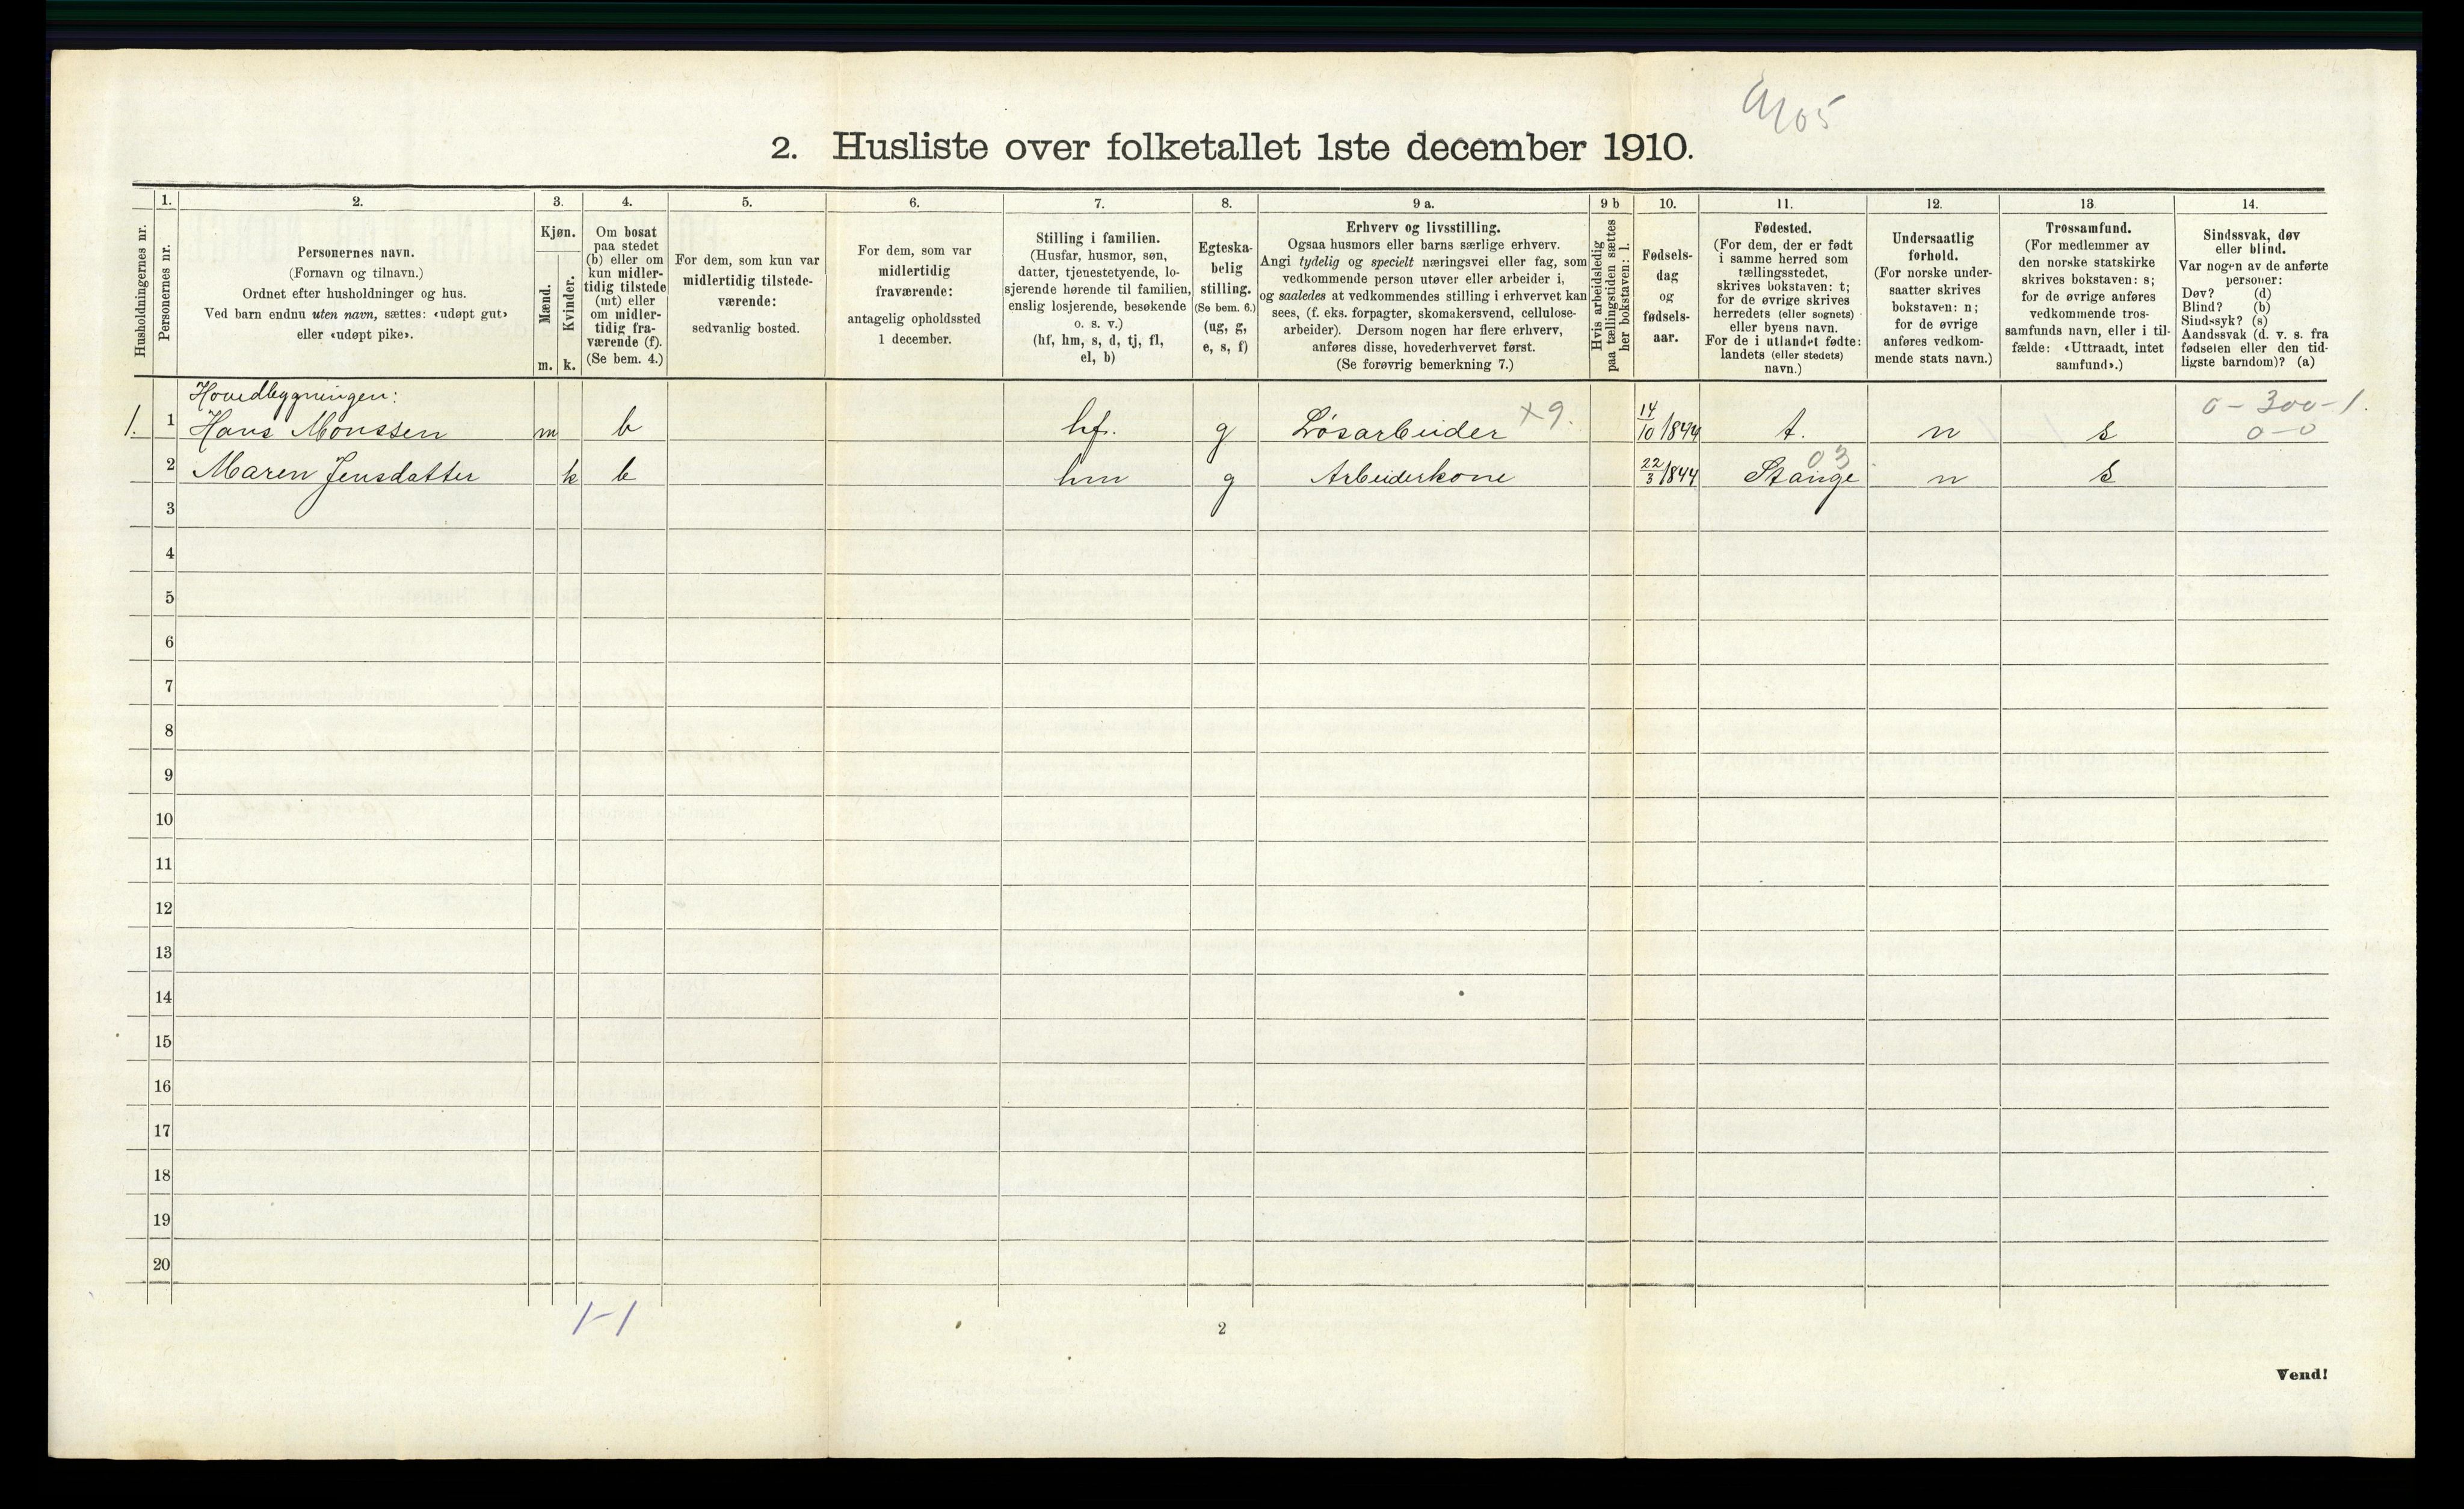 2. Husliste over folketallet 1ste december 1910.
1. 2. 3. 4. 5. 6. 7. 8. 9 a. 9 b 10. 11. 12. 13 14.
Husholdningernes nr.
Personernes nr.
Personernes navn.
(Fornavn og tilnavn.)
Ordnet efter husholdninger og hus.
Ved barn endnu uten navn, sættes: «udøpt gut»
eller «udøpt pike».
Kjøn.
Mænd.
Kvinder.
m. k.
Om bosat
paa stedet
(b) eller om
kun midler-
tidig tilstede
(mt) eller
om midler-
tidig fra-
værende (f).
(Se bem. 4.)
For dem, som kun var
midlertidig tilstede-
værende:
sedvanlig bosted.
For dem, som var
midlertidig
fraværende:
antagelig opholdssted
1 december.
Stilling i familien.
(Husfar, husmor, søn,
datter, tjenestetyende, lo-
sjerende hørende til familien,
enslig losjerende, besøkende
o. s. v.)
(hf, hm, s, d, tj, fl,
el, b)
Egteska-
belig
stilling.
(Se bem. 6.)
(ug, g,
e, s, f)
Erhverv og livsstilling.
Ogsaa husmors eller barns særlige erhverv.
Angi tydelig og specielt næringsvei eller fag, som
vedkommende person utøver eller arbeider i,
og saaledes at vedkommendes stilling i erhvervet kan
sees, (f. eks. forpagter, skomakersvend, cellulose-
arbeider). Dersom nogen har flere erhverv,
anføres disse, hovederhvervet først.
(Se forøvrig bemerkning 7.)
Hvis arbeidsledig
paa tællingstiden sættes
her bokstaven: l.
Fødsels-
dag
og
fødsels-
aar.
Fødested.
(For dem, der er født
i samme herred som
tællingsstedet,
skrives bokstaven: t;
for de øvrige skrives
herredets (eller sognets)
eller byens navn.
For de i utlandet fødte:
landets (eller stedets)
navn.)
Undersaatlig
forhold.
(For norske under-
saatter skrives
bokstaven: n;
for de øvrige
anføres vedkom-
mende stats navn.)
Trossamfund.
(For medlemmer av
den norske statskirke
skrives bokstaven: s;
for de øvrige anføres
vedkommende tros-
samfunds navn, eller i til-
fælde: «Uttraadt, intet
samfund».)
Sindssvak, døv
eller blind.
Var nogen av de anførte
personer:
Døv? (d)
Blind? (b)
Sindssyk? (s)
Aandssvak (d. v. s. fra
fødselen eller den tid-
ligste barndom)? (a)
Hovedbygningen: 0 - 300 - 1.
1. 1 Hans Monssen m b hf. g Løsarbeider x9. 14/10 1844 t. n s 0-0
2 Maren Jensdatter k b hm g Arbeiderkone 22/3 1844 Stange 03 n s
3
4
5
6
7
8
9
10
11
12
13
14
15
16
17
18
19
20
1-1
2
Vend!